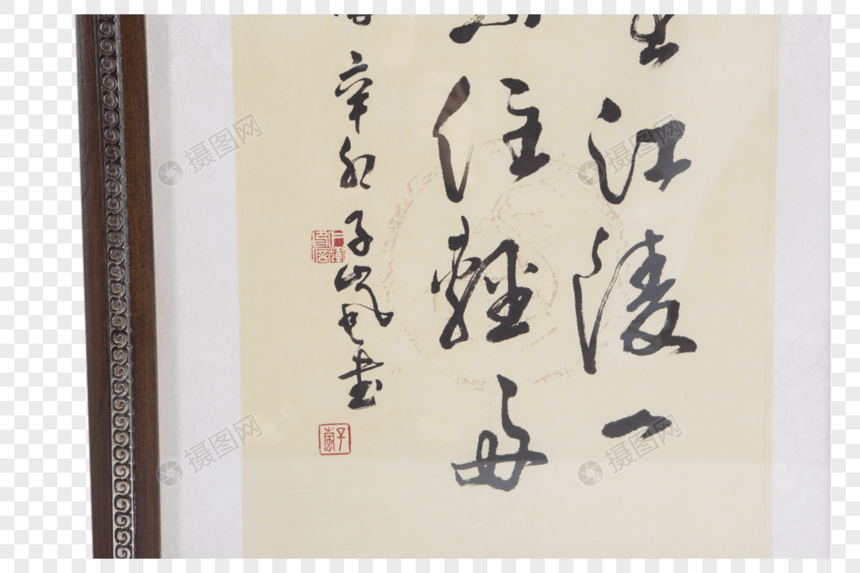 里江陵一
不住輕舟
辛卯子嵐書
摄图网
摄图网
摄图网
摄图网